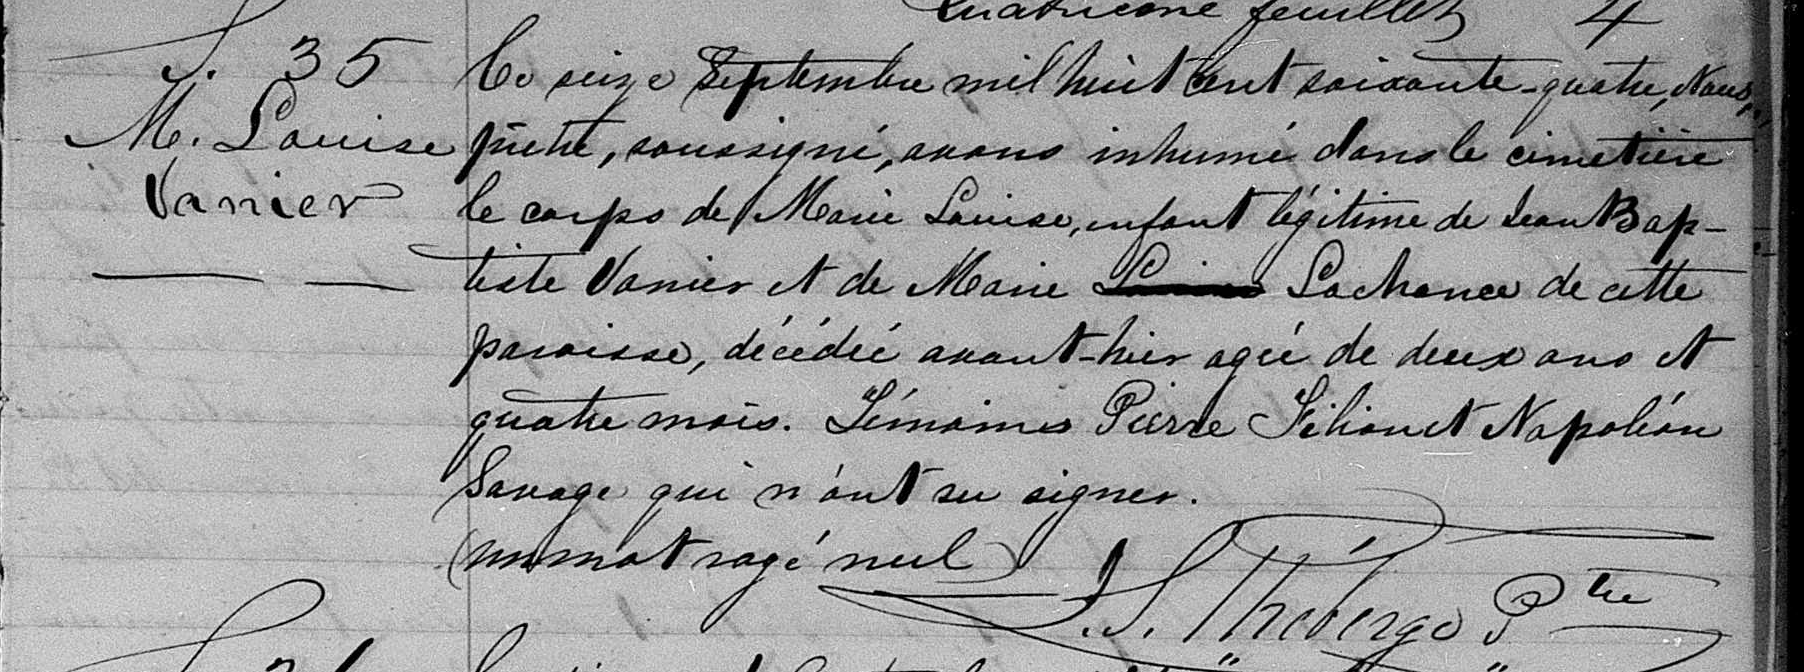 Quatrieme feuillet 4
S. 35
M. Louise
Vanier
Ce seize Septembre mil huit cent soixante-quatre, Nous,
prêtre, soussigné, avons inhumé dans le cimetière
le corps de Marie Louise, enfant légitime de Jean Bap-
tiste Vanier et de Marie Louise Lachance de cette
paroisse, décédée avant-hier agée de deux ans et
quatre mois. Témoins Pierre Filion et Napoléon
Savage qui n'ont su signer.
(un mot rayé nul)
J. S. Théberge Ptre